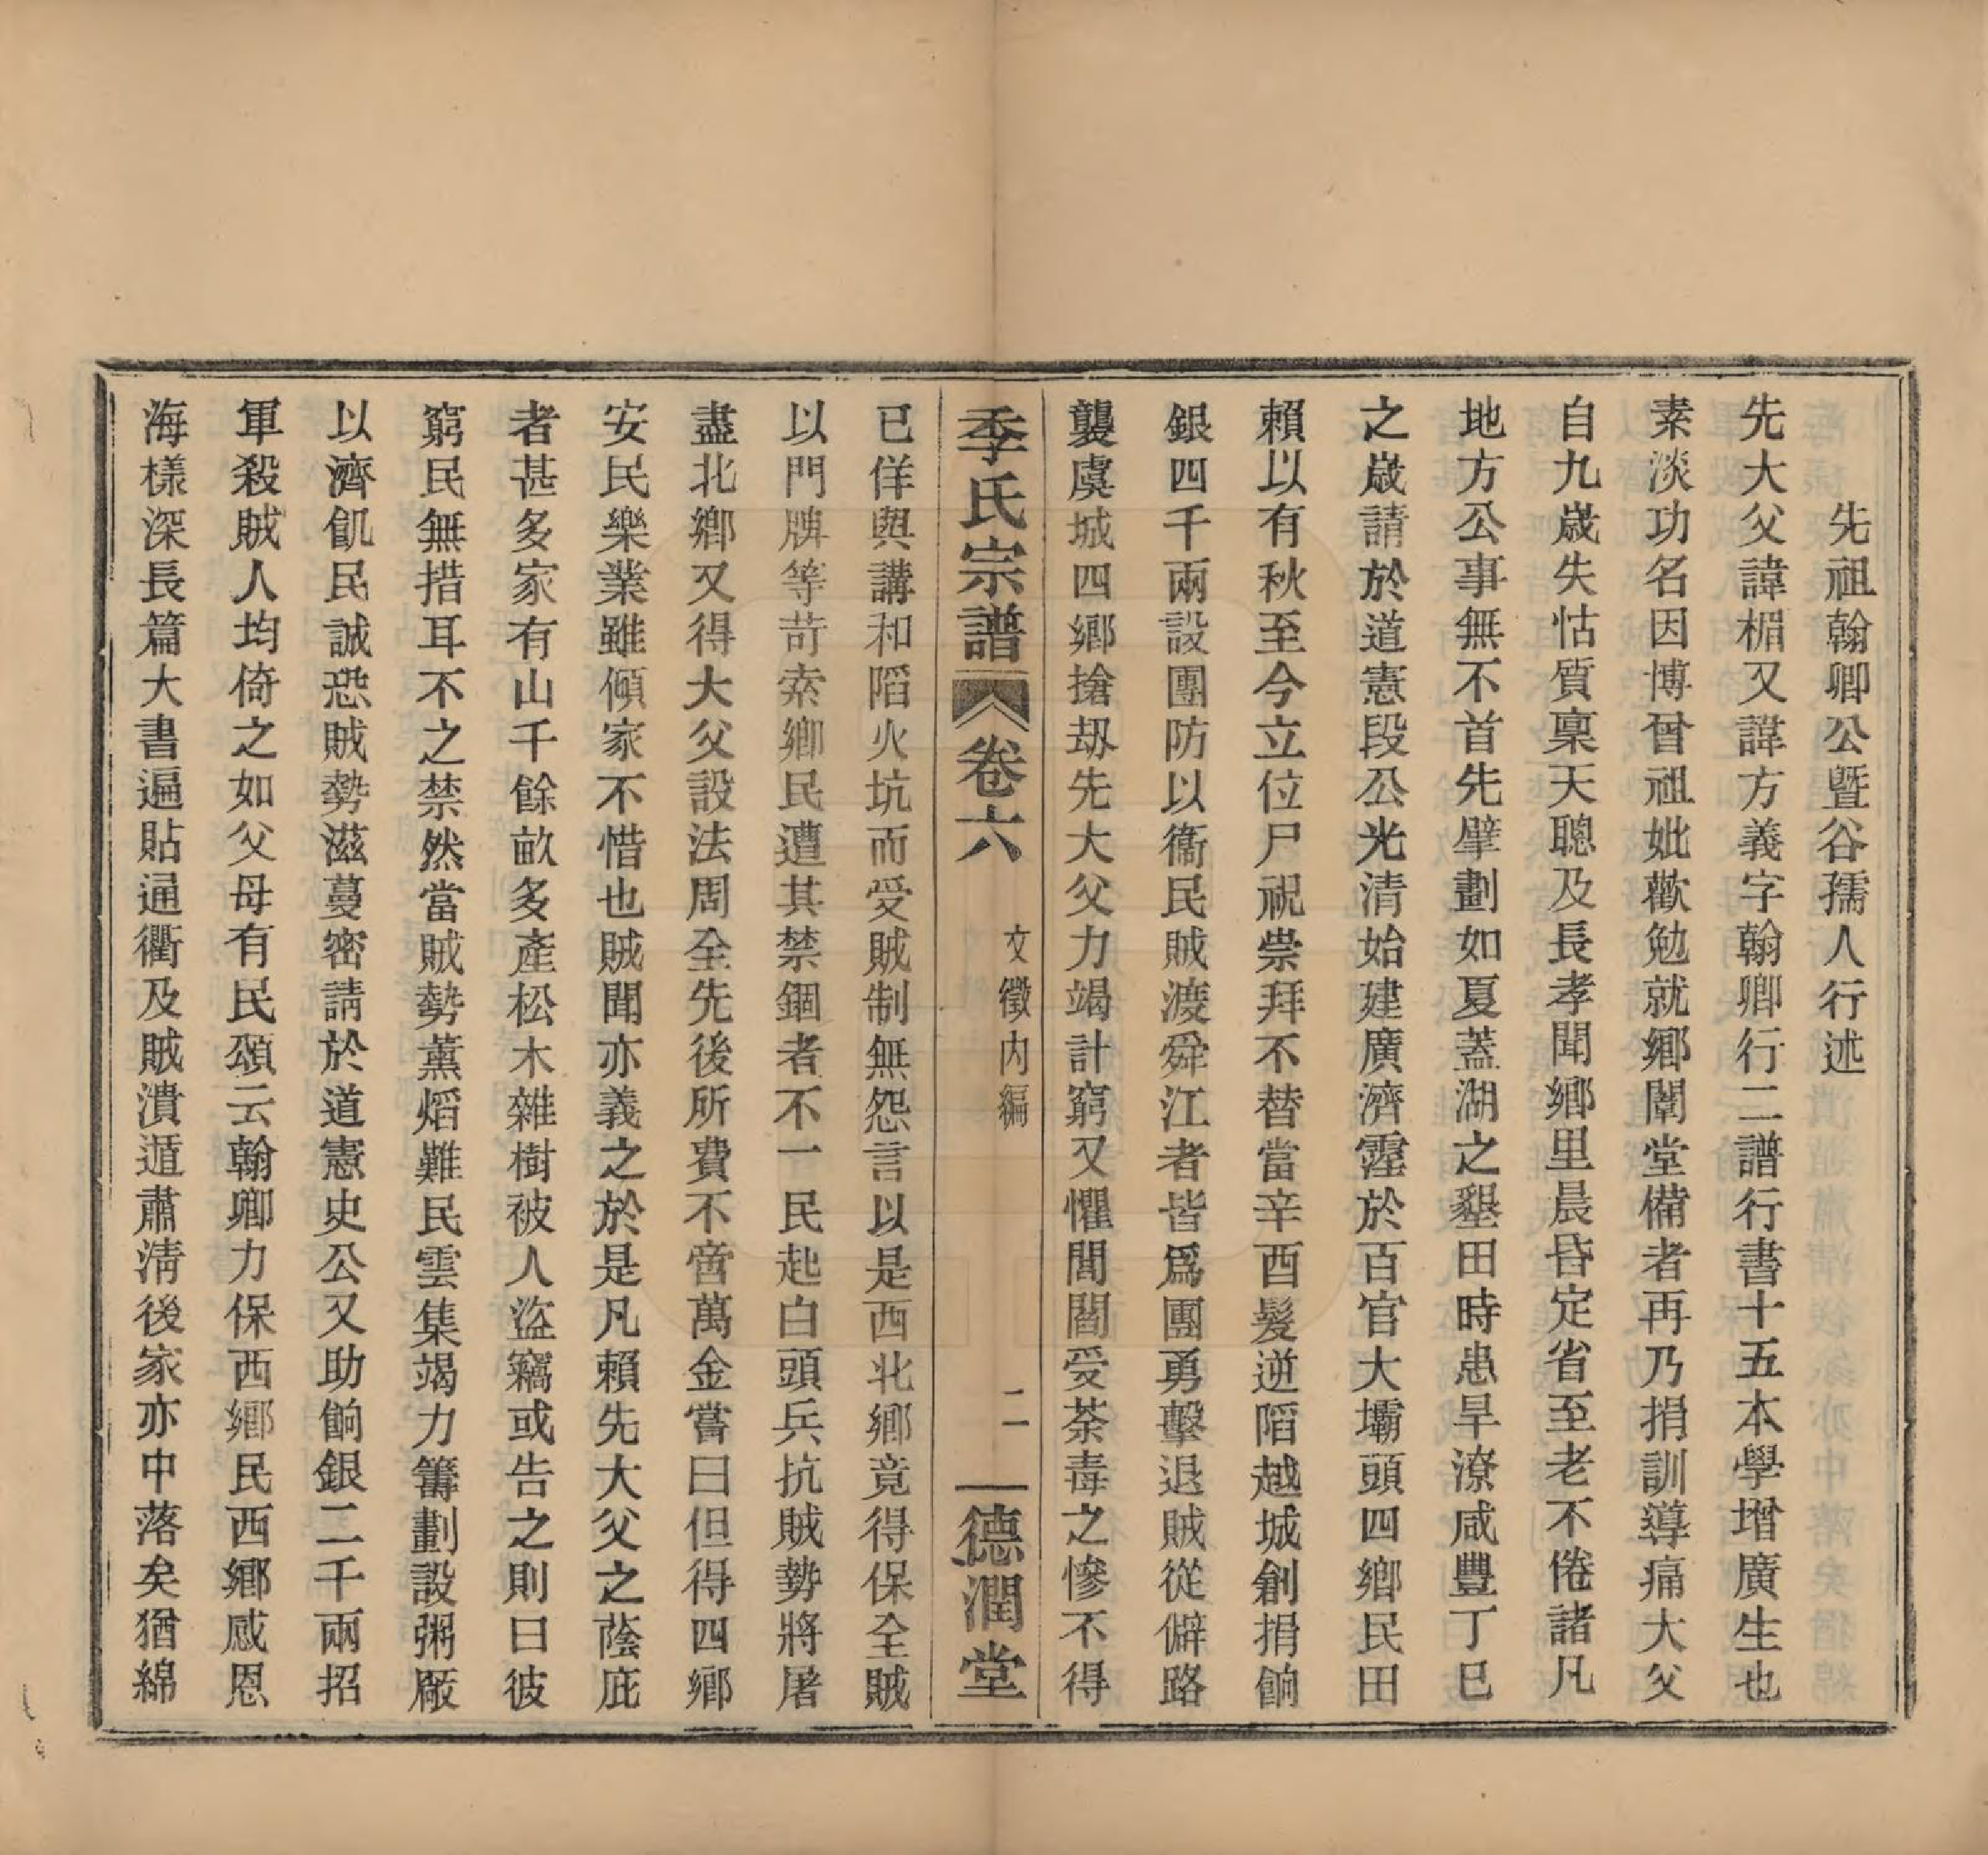 先祖翰卿公暨谷孺人行述
先大父諱楣又諱方義字翰卿行二譜行書十五本學增廣生也
素淡功名因博曾祖妣歡勉就鄉闈堂備者再乃捐訓導痛大父
自九歲失怙質稟天聰及長孝聞鄉里晨昏定省至老不倦諸凡
地方公事無不首先擘劃如夏蓋湖之墾田時患旱潦咸豐丁巳
之歲請於道憲段公光清始建廣濟霪於百官大壩頭四鄉民田
賴以有秋至今立位尸祝崇拜不替當辛酉髮逆陷越城創捐餉
銀四千兩設團防以衞民賊渡舜江者皆爲團勇擊退賊從僻路
襲虞城四鄉搶刧先大父力竭計窮又懼閭閻受荼毒之慘不得
季氏宗譜 卷六 文徵內編 二 德潤堂
已佯與講和陷火坑而受賊制無怨言以是西北鄉竟得保全賊
以門牌等苛索鄉民遭其禁錮者不一民起白頭兵抗賊勢將屠
盡北鄉又得大父設法周全先後所費不啻萬金嘗曰但得四鄉
安民樂業雖傾家不惜也賊聞亦義之於是凡賴先大父之蔭庇
者甚多家有山千餘畝多產松木雜樹被人盜竊或告之則曰彼
窮民無措耳不之禁然當賊勢薰熖難民雲集竭力籌劃設粥厰
以濟飢民誠恐賊勢滋蔓密請於道憲史公又助餉銀二千兩招
軍殺賊人均倚之如父母有民頌云翰卿力保西鄉民西鄉感恩
海樣深長篇大書遍貼通衢及賊潰遁肅淸後家亦中落矣猶綿